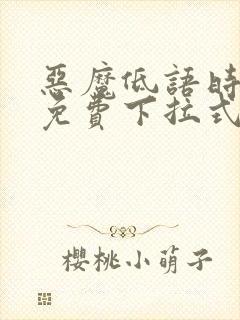 惡魔低語時
免費下拉式
櫻桃小萌子